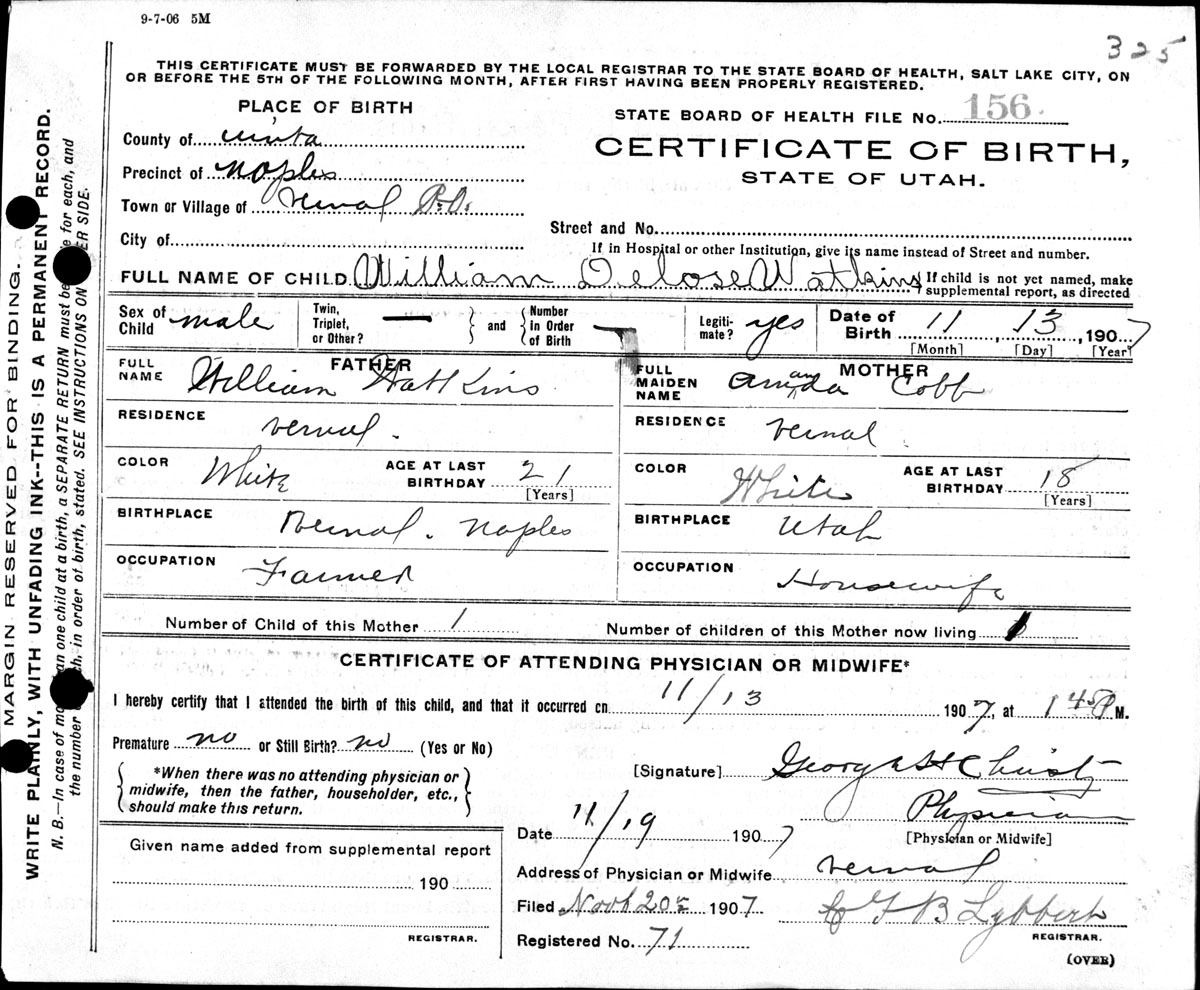 9-7-06 5M
325
THIS CERTIFICATE MUST BE FORWARDED BY THE LOCAL REGISTRAR TO THE STATE BOARD OF HEALTH, SALT LAKE CITY, ON
OR BEFORE THE 5TH OF THE FOLLOWING MONTH, AFTER FIRST HAVING BEEN PROPERLY REGISTERED.
PLACE OF BIRTH
STATE BOARD OF HEALTH FILE No. 156.
County of uinta
CERTIFICATE OF BIRTH,
STATE OF UTAH.
Precinct of Naples
Town or Village of Vernal P.O.
Street and No.
City of
If in Hospital or other Institution, give its name instead of Street and number.
FULL NAME OF CHILD William Delose Watkins If child is not yet named, make
supplemental report, as directed
Sex of Child male Twin, Triplet, or Other? — and Number in Order of Birth — Legiti-mate? yes Date of Birth 11, 13, 1907
[Month] [Day] [Year]
FATHER
FULL NAME William Watkins
RESIDENCE Vernal.
COLOR White AGE AT LAST BIRTHDAY 21
[Years]
BIRTHPLACE Vernal. Naples
OCCUPATION Farmer
MOTHER
FULL MAIDEN NAME Amanda Cobb
RESIDENCE Vernal.
COLOR White AGE AT LAST BIRTHDAY 18
[Years]
BIRTHPLACE Utah
OCCUPATION Housewife
Number of Child of this Mother 1 Number of children of this Mother now living 1
CERTIFICATE OF ATTENDING PHYSICIAN OR MIDWIFE*
I hereby certify that I attended the birth of this child, and that it occurred on 11/13 1907, at 1 45 P M.
Premature no or Still Birth? no (Yes or No)
*When there was no attending physician or
midwife, then the father, householder, etc.,
should make this return.
[Signature] George H Christy
Physician
[Physician or Midwife]
Date 11/19 1907
Given name added from supplemental report
190
REGISTRAR.
Address of Physician or Midwife Vernal
Filed Nov 20 1907 C F B Lybbert
REGISTRAR.
Registered No. 71
(OVER)
MARGIN RESERVED FOR BINDING.
WRITE PLAINLY, WITH UNFADING INK--THIS IS A PERMANENT RECORD.
N. B.—In case of one child at a birth, a SEPARATE RETURN must be for each, and
the number in order of birth, stated. SEE INSTRUCTIONS ON SIDE.